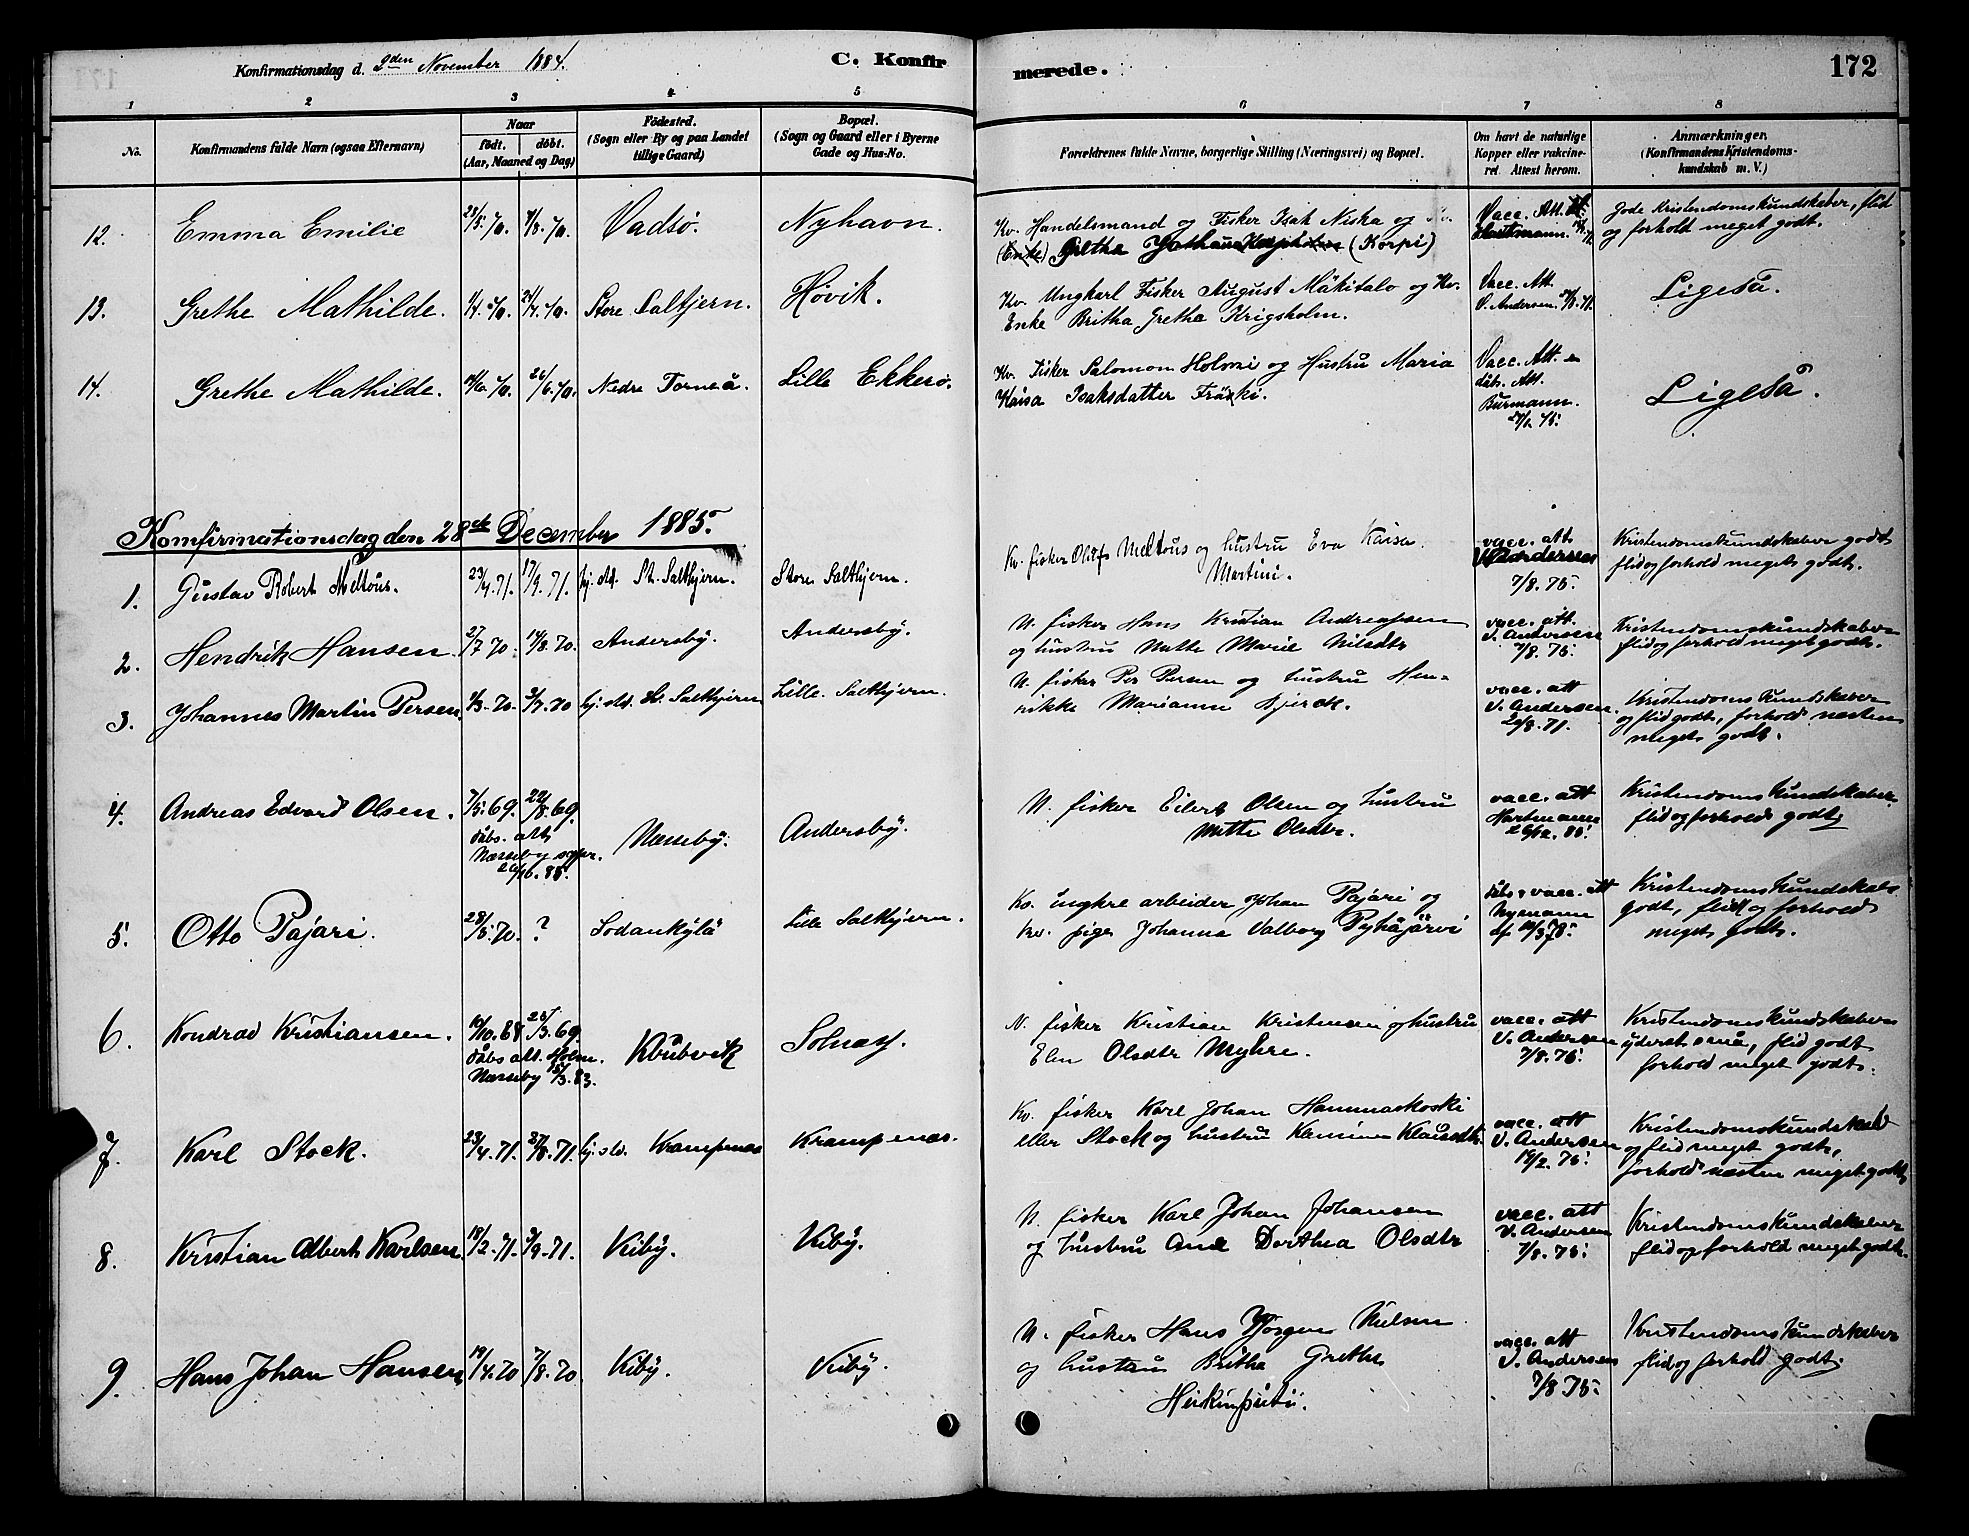 Konfirmationsdag d. 2den November 1884.
C. Konfirmerede.
172
1 2 3 4 5 6 7 8
No.
Konfirmandens fulde Navn (ogsaa Efternavn)
Naar
født. døbt.
(Aar, Maaned og Dag)
Fødested.
(Sogn eller By og paa Landet
tillige Gaard)
Bopæl.
(Sogn og Gaard eller i Byerne
Gade og Hus-No.
Forældrenes fulde Navne, borgerlige Stilling (Næringsvei) og Bopæl.
Om havt de naturlige
Kopper eller vakcine-
ret. Attest herom.
Anmærkninger.
(Konfirmandens Kristendoms-
kundskab m. V.)
12. Emma Emilie 28/5 70. 70. Vadsø. Nyhavn.
Kv. Handelsmand og Fisker Isak Niska og Kv.
Grethe (Korpi)
Vacc. Att.
Gode Kristendomskundskaber, flid
og forhold meget godt.
13. Grethe Mathilde. 70. 24/4 70. Store Saltjern. Høvik.
Kv. Ungkarl Fisker August Mäkitalo og Kv.
Enke Britha Gretha Krigsholm.
Vacc. Att.
V. Andersen.
Ligeså.
14. Grethe Mathilde. 70. 26/6 70. Nedre Torneå. Lille Ekkerø.
Kv. Fisker Salomon Holmi og Hustru Maria
Kaisa Isaksdatter
Vacc. Att. -
dåbs. Att.
Burmann.
Ligeså.
Konfirmationsdag den 28de December 1885.
1. Gustav Robert Meltous. 23/4. 71. 17/9. 71. hj. dbt. St. Saltkjern. Store Saltkjern.
Kv. fisker Olof Meltous og hustru Eva Kaisa
Martini.
vacc. att
V. Andersen
7/8. 75.
Kristendomskundskaber godt
flid og forhold meget godt.
2. Hendrik Hansen. 27/7 70. 14/8. 70. Andersby. Andersby.
N. fisker Hans Kristian Andreassen
og hustru Mette Marie Nilsdtr
vacc. att.
V. Andersen
7/8. 75.
Kristendomskundskaber
flid og forhold meget godt.
3. Johannes Martin Persen 70. 3/7. 70 hj. dbt. Saltkjern Lille Saltkjern.
N. fisker Per Persen og hustru Hen-
rikke Marianne
vacc. att
V. Andersen.
20/8. 71.
Kristendomskundskaber
og flid godt, forhold næsten
meget godt.
4. Andreas Edvard Olsen. 7/5. 69. 22/8. 69.
dåbs. att
Næsseby
Næsseby. Andersby.
N. fisker Eilert Olsen og hustru
Mette Olsdtr.
vacc. att
Hartmann
26/12. 85.
Kristendomskundskaber
flid og forhold godt
5. Otto Pajari. 28/5. 70. ? Sodankylä Lille Saltkjern.
Kv. ungkrl arbeider Johan Pajari og
kv. pige Johanna Valborg Pyhäjärvi
dåbs & vacc. att
Nymann
Kristendomskundskab
godt, flid og forhold
meget godt.
6. Kondrad Kristiansen. 68 69.
dåbs att. Holm.
Næsseby 83.
Klubvik Solnæs.
N. fisker Kristian Kristensen og hustru
Elen Olsdtr Myhre.
vacc. att
V. Andersen
7/8. 75.
Kristendomskundskaber
yderst små, flid godt
forhold meget godt.
7. Karl Stock. 23/4. 71. 27/8. 71. hj. dbt. Krampenæs Krampenæs.
Kv. fisker Karl Johan Hammaskoski
eller Stock og hustru Klausdtr.
vacc. att
V. Andersen
19/2. 75.
Kristendomskundskab
og flid meget godt,
forhold næsten meget godt
8. Kristian Albert Karlsen 18/2. 71. 3/9. 71. Kiby. Kiby.
N. fisker Karl Johan Johansen
og hustru Ane Dorthea Olsdtr
vacc. att
V. Andersen
7/8. 75.
Kristendomskundskaber
flid og forhold meget godt.
9. Hans Johan Hansen 19/4. 70 7/8. 70 Kiby. Kiby.
N. fisker Hans Jørgen Nielsen
og hustru Britha Grethe
vacc. att
V. Andersen
7/8 75.
Kristendomskundskaber
flid og forhold godt.